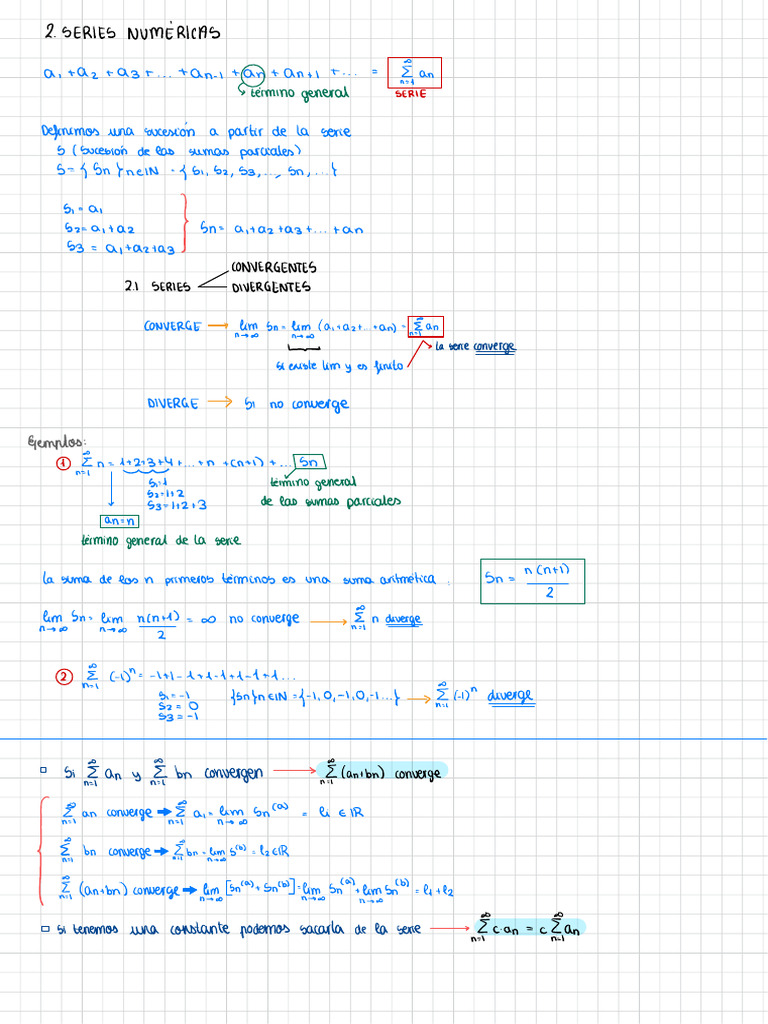 2. SERIES NUMÉRICAS
a₁ + a₂ + a₃ + ... + aₙ₋₁ + aₙ + aₙ₊₁ + ... = ∑ₙ₌₁^∞ aₙ
término general
SERIE
Definimos una sucesión a partir de la serie
S (sucesión de las sumas parciales)
S = {Sn}n∈ℕ = {S₁, S₂, S₃, ..., Sn, ...}
S₁ = a₁
S₂ = a₁ + a₂
Sn = a₁ + a₂ + a₃ + ... + an
S₃ = a₁ + a₂ + a₃
CONVERGENTES
2.1 SERIES
DIVERGENTES
CONVERGE → lim n→∞ Sn = lim n→∞ (a₁ + a₂ + ... + an) = ∑ₙ₌₁^∞ an
la serie converge
si existe lim y es finito
DIVERGE → Si no converge
Ejemplos:
① ∑ₙ₌₁^∞ n = 1+2+3+4+...+n+(n+1)+... Sn
S₁=1
S₂=1+2
S₃=1+2+3
término general
de las sumas parciales
an=n
término general de la serie
la suma de los n primeros términos es una suma aritmética: Sn = n(n+1)/2
lim n→∞ Sn = lim n→∞ n(n+1)/2 = ∞ no converge → ∑ₙ₌₁^∞ n diverge
② ∑ₙ₌₁^∞ (-1)ⁿ = -1+1-1+1-1+1-1+1...
S₁ = -1
S₂ = 0
S₃ = -1
{Sn}n∈ℕ = {-1, 0, -1, 0, -1...} → ∑ₙ₌₁^∞ (-1)ⁿ diverge
□ Si ∑ₙ₌₁^∞ an y ∑ₙ₌₁^∞ bn convergen → ∑ₙ₌₁^∞ (an+bn) converge
∑ₙ₌₁^∞ an converge → ∑ₙ₌₁^∞ a₁ = lim n→∞ Sn⁽ᵃ⁾ = l₁ ∈ ℝ
∑ₙ₌₁^∞ bn converge → ∑ₙ₌₁^∞ bn = lim n→∞ S⁽ᵇ⁾ = l₂ ∈ ℝ
∑ₙ₌₁^∞ (an+bn) converge → lim n→∞ [Sn⁽ᵃ⁾ + Sn⁽ᵇ⁾] = lim n→∞ Sn⁽ᵃ⁾ + lim n→∞ Sn⁽ᵇ⁾ = l₁ + l₂
□ Si tenemos una constante podemos sacarla de la serie → ∑ₙ₌₁^∞ c·an = c ∑ₙ₌₁^∞ an